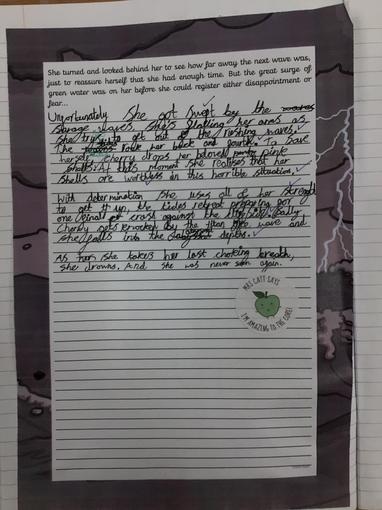 She turned and looked behind her to see how far away the next wave was,
just to reassure herself that she had enough time. But the great surge of
green water was on her before she could register either disappointment or
fear...
Unfortunately She got swept by the
savage waves, she's flailing her arms as
she trys to get out of the rushing waves.
The rock her back and fourth. To save
herself cherry drops her beloved pink
shells. At this moment she realises that her
shells are worthless in this horrible situation.
With determination she uses all of her strength
to get it up, the tides retreat preparing for
one final crash against the
Cherry gets knocked by the titan wave and
she falls into the depths.
As she takes her last choking breath,
she drowns. And she was never seen again.
MRS CATT SAYS
I'M AMAZING TO THE CORE!